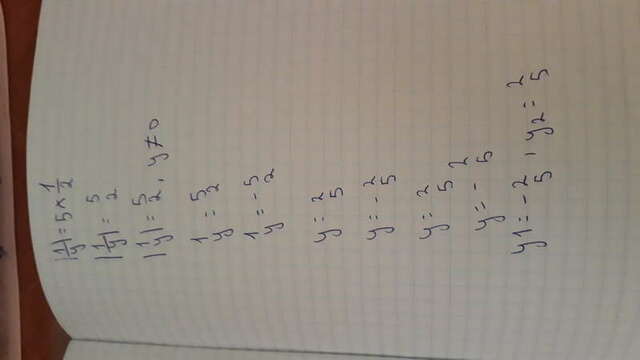 |1/y| = 5 × 1/2
|1/y| = 5/2
|1/y| = 5/2, y ≠ 0
1/y = 5/2
1/y = - 5/2
y = 2/5
y = - 2/5
y = 2/5
y = - 2/5
y1 = - 2/5, y2 = 2/5